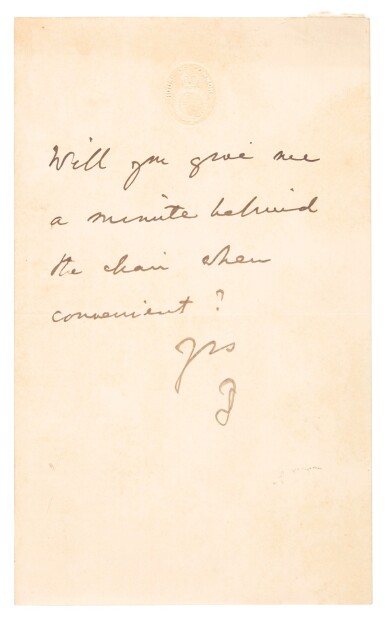 Will you give me
a minute behind
the chair when
convenient?
yrs
D